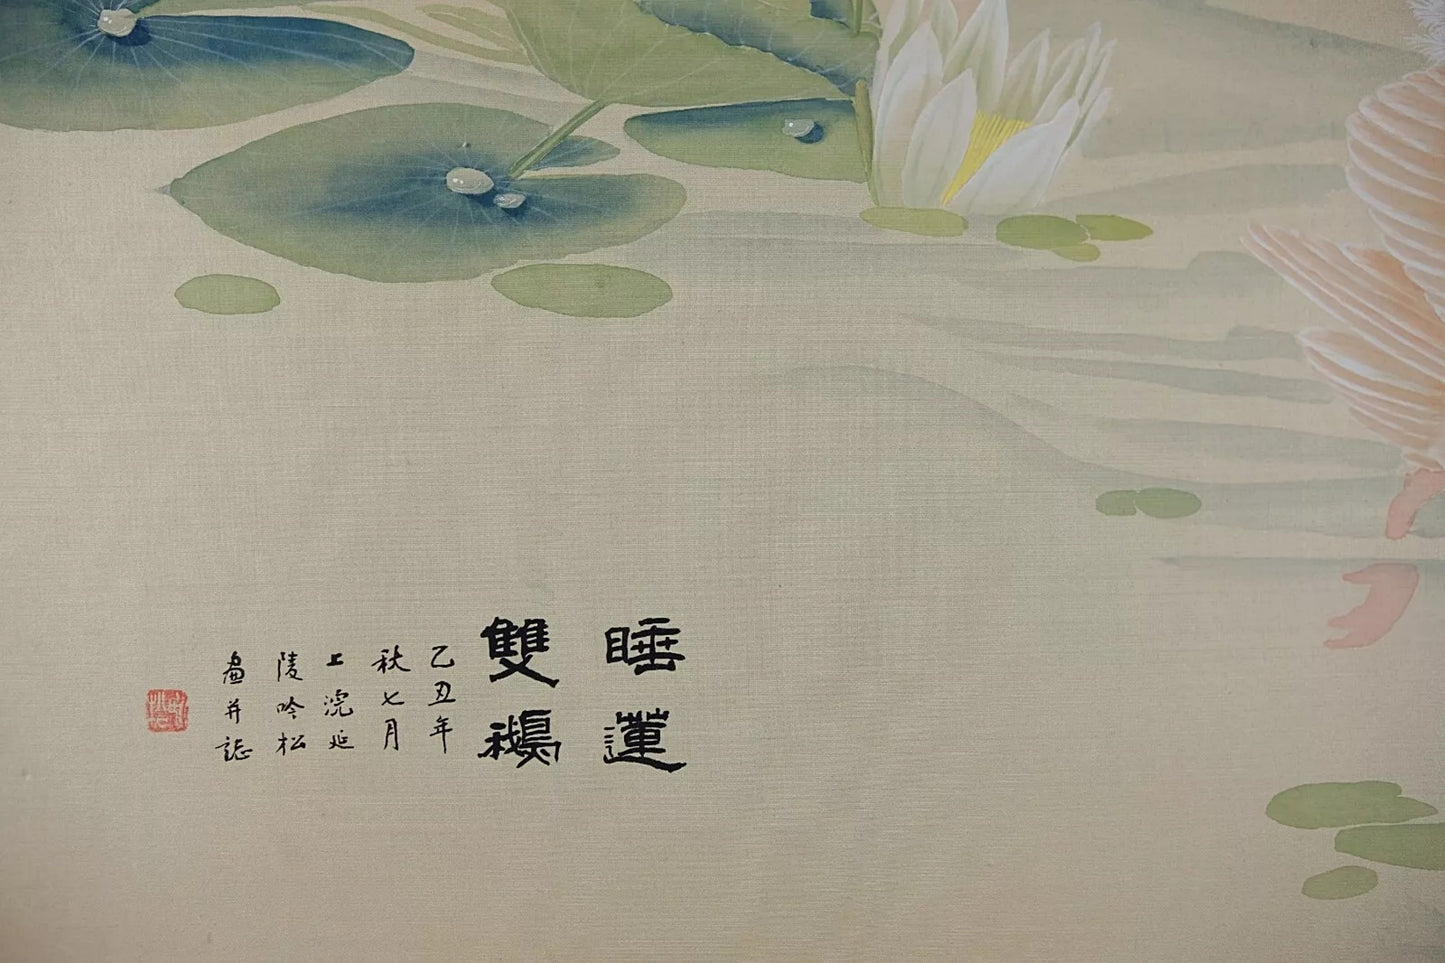 睡蓮
雙鵝
乙丑年
秋七月
上浣延
陵吟松
畫并誌